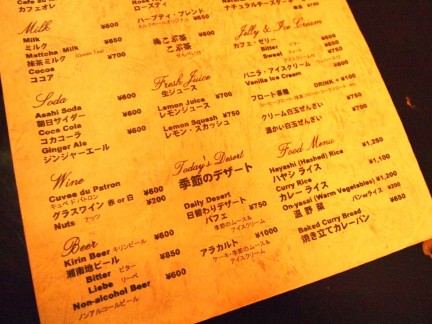 カフェオレ
Milk
Milk ¥600
ミルク
Mattcha Milk ¥700
抹茶ミルク
Cocoa
ココア
Soda
Asahi Soda ¥600
朝日サイダー
Coca Cola
コカコーラ
Ginger Ale
ジンジャーエール
Wine
Cuvee du Patron ¥600
キュベ ド パトロン
グラスワイン 赤 or 白 ¥200
Nuts ナッツ
Beer
Kirin Beer キリンビール ¥600
湘南地ビール ¥850
Bitter ビター
Liebe リーベ ¥600
Non-alcohol Beer
ノンアルコールビール
ロースティ
ハーブティ・ブレンド ¥650
梅こぶ茶 ¥600
こぶ茶
Fresh Juice
生ジュース
Lemon Juice ¥750
レモンジュース
Lemon Squash ¥750
レモン・スカッシュ
Today's Desert
季節のデザート
Daily Desert
日替わりデザート ¥750
パフェ
季節のムース&
アイスクリーム
アラカルト ¥1000
ケーキ・季節のムース&
アイスクリーム
ナチュラルチーズケーキ
Jelly & Ice Cream
カフェ・ゼリー
Bitter
Sweet
バニラ・アイスクリーム
Vanilla Ice Cream
フロート各種 DRINK +
クリーム白玉ぜんざい
温かい白玉ぜんざい ¥750
Food Menu
Hayashi (Hashed) Rice ¥1,250
ハヤシ ライス
Curry Rice ¥1,100
カレー ライス
On-yasai (Warm Vegetables) ¥1,200
温野菜 パン ¥200
Baked Curry Bread ¥650
焼き立てカレーパン